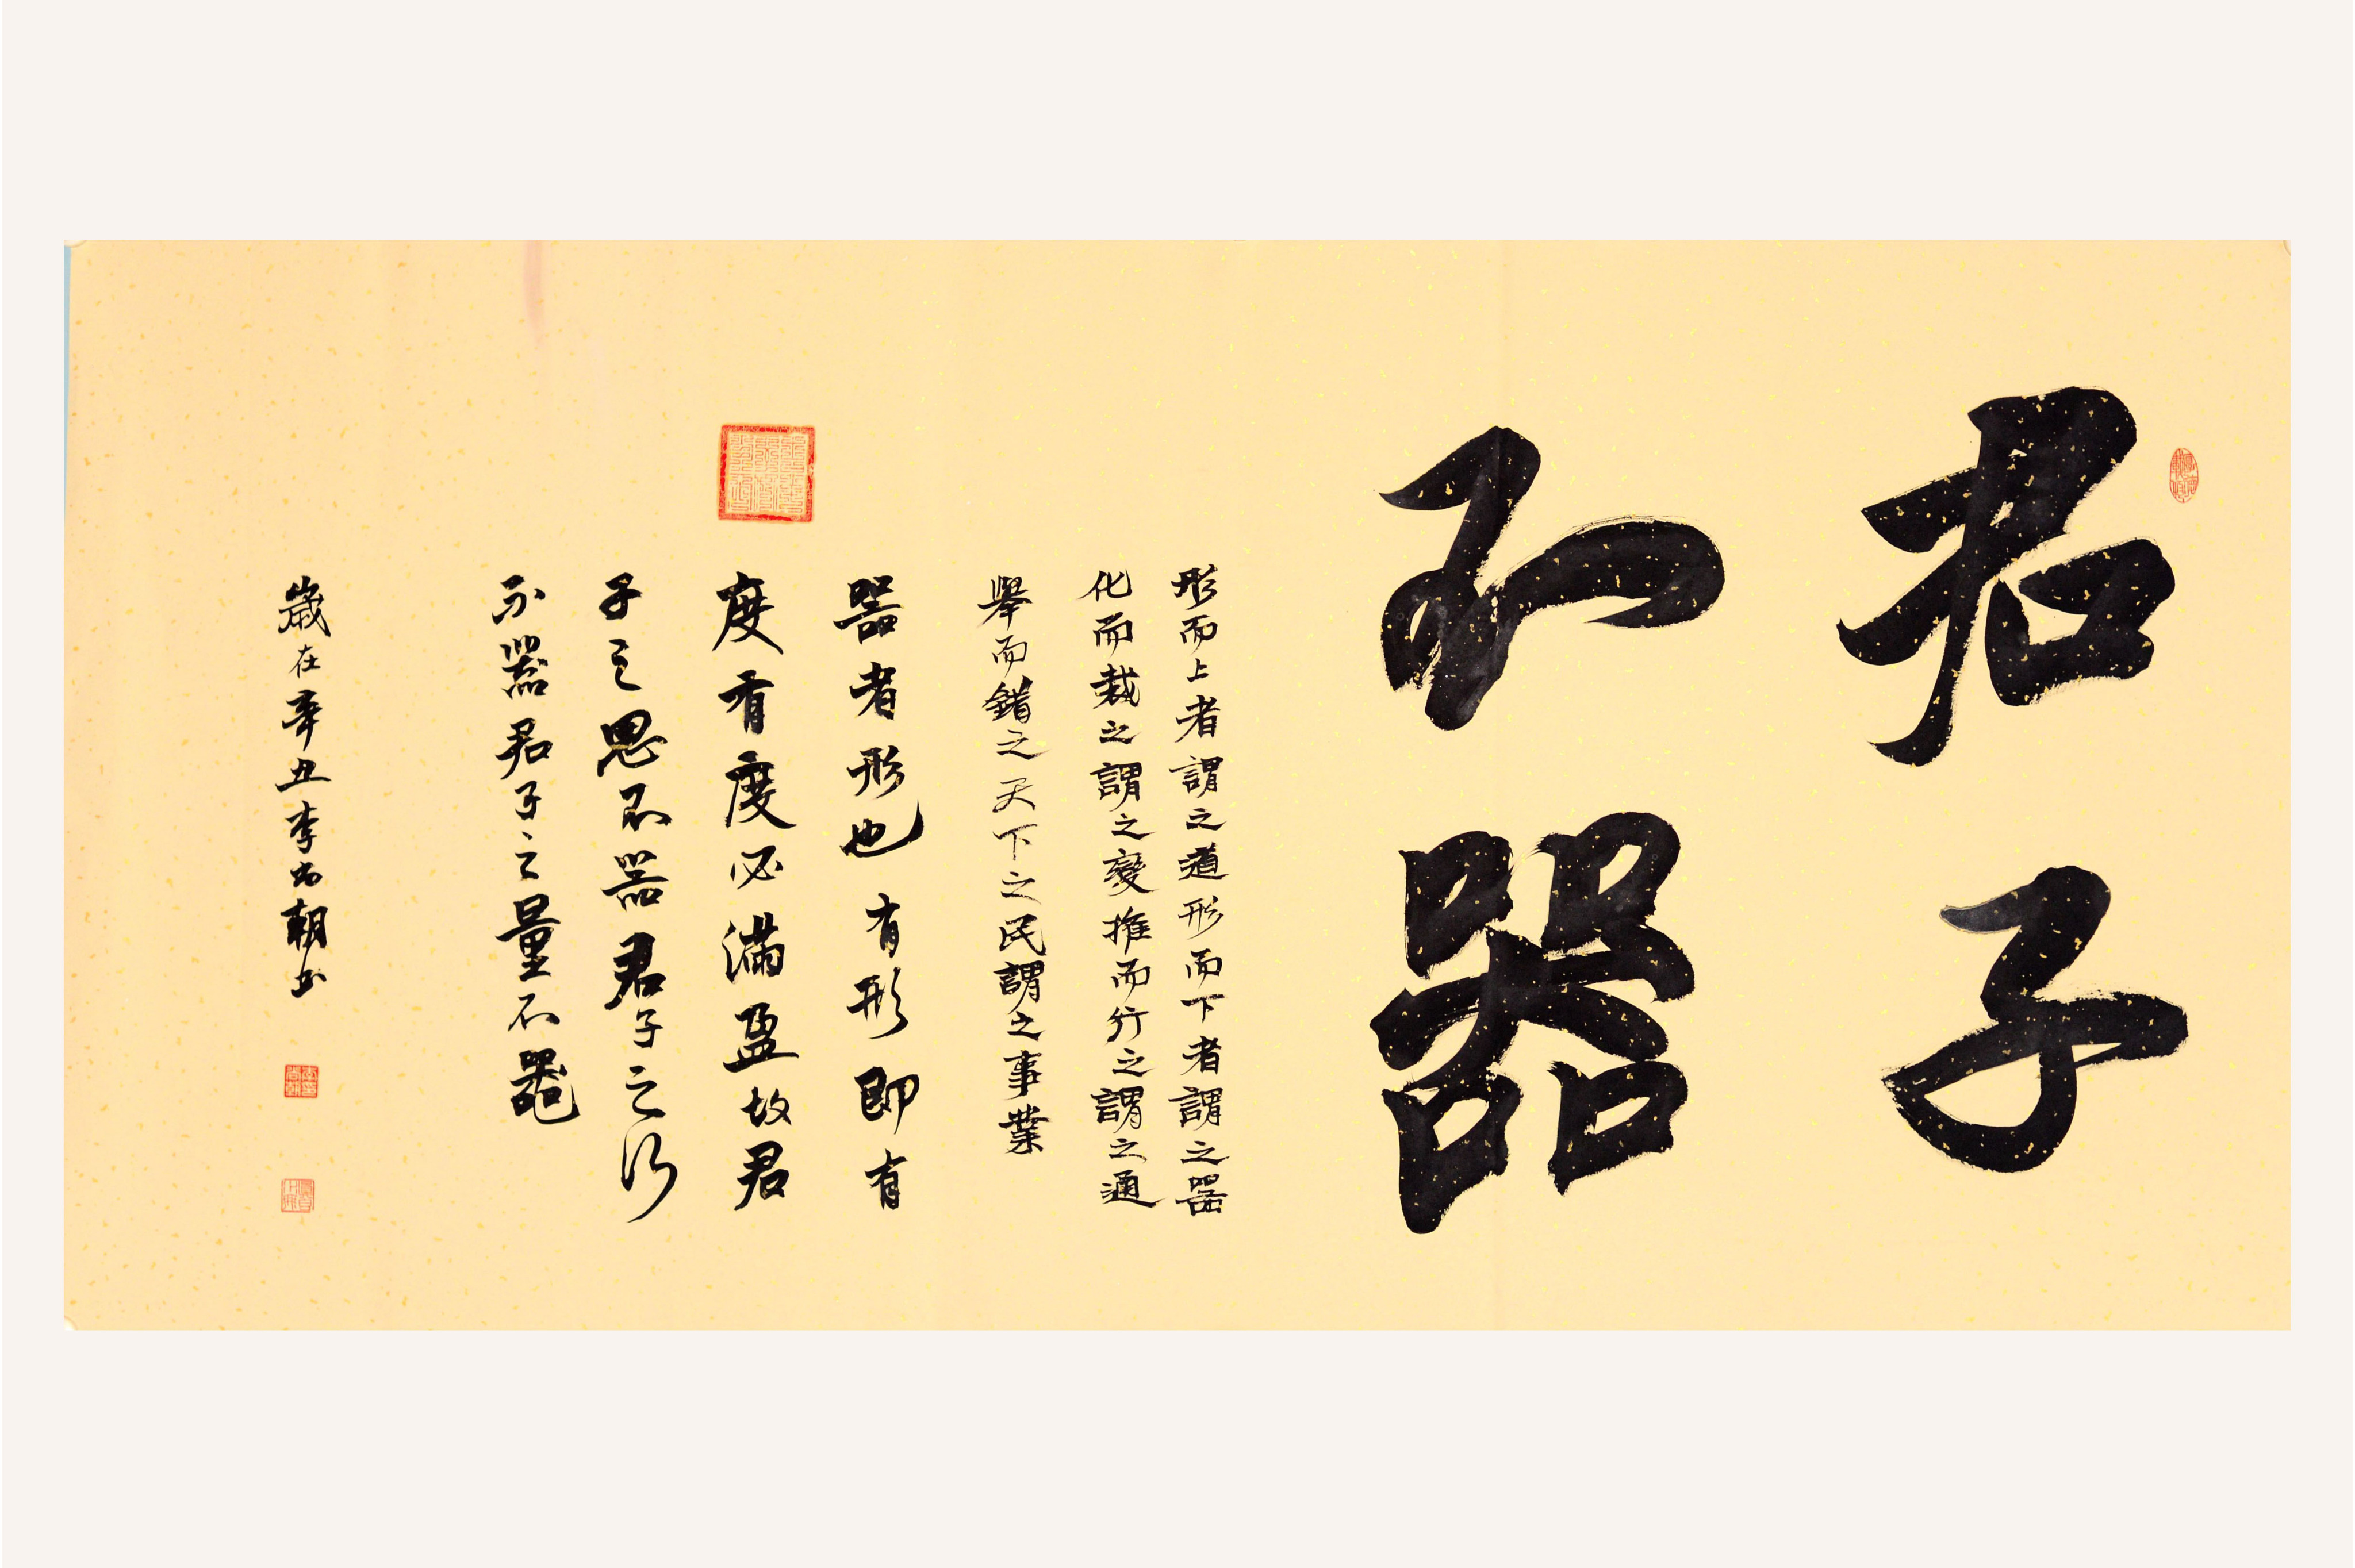 君子
不器
形而上者謂之道形而下者謂之器
化而裁之謂之變推而行之謂之通
舉而錯之天下之民謂之事業
器者形也有形即有
度有度必滿盈故君
子之思不器君子之行
不器君子之量不器
歲在辛丑李尚朝书